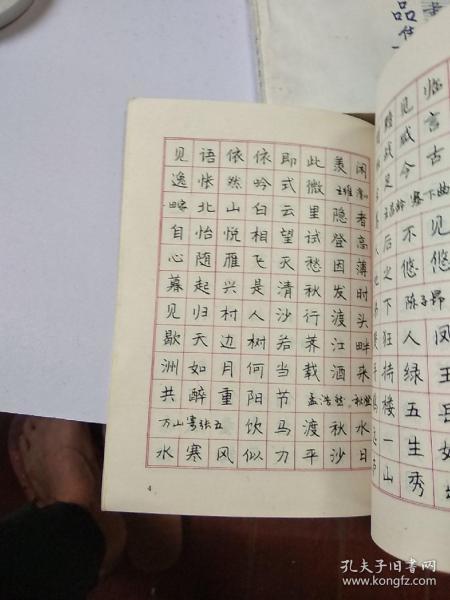 见语依依即此羡闲
逸怅然吟式微 王维 渭川
田家 北山白云里隐者
自怡悦相望试登高
心随雁飞灭愁因薄
暮起兴是清秋发时
见归村人沙行渡头
歇天边树若荠江畔
洲如月何当载酒来
共醉重阳节 孟浩然 秋登
万山寄张五 饮马渡秋水
水寒风似刀平沙日
4
黯见临
战咸言
足今古
王昌龄 塞下曲
后不见
之悠悠
下 陈子昂
狂人凤
持绿玉
楼五岳
一生
山秀
品
孔夫子旧书网
www.kongfz.com